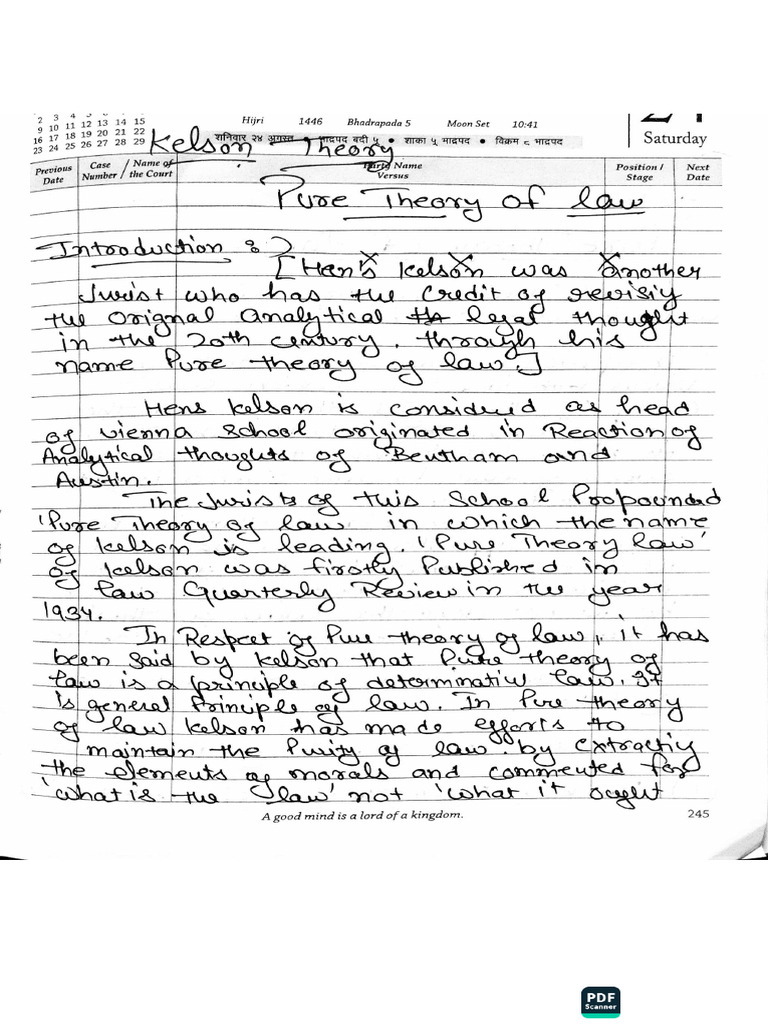 2 3 4 5 6 7 8
9 10 11 12 13 14 15
16 17 18 19 20 21 22
23 24 25 26 27 28 29
Hijri 1446 Bhadrapada 5 Moon Set 10:41
शनिवार २४ अगस्त • भाद्रपद बदी ५ • शाका ५ भाद्रपद • विक्रम ८ भाद्रपद
Saturday
Kelson Theory
Previous Date
Case Number / Name of the Court
Party Name Versus
Position / Stage
Next Date
Pure Theory of law
Introduction :
[Hens Kelson was another
Jurist who has the credit of revisiy
the orignal analytical legal thought
in the 20th century. through his
name Pure theory of law.]
Hens Kelson is considered as head
of vienna School originated in Reaction of
Analytical thoughts of Bentham and
Austin.
The Jurists of this School Propounded
'Pure Theory of law in which the name
of Kelson is leading. 'Pure Theory law'
of Kelson was firstly Published in
law Quarterly Review in the year
1934.
In Respect of Pure theory of law, it has
been said by Kelson that Pure theory of
law is a principle of determinativ law. It
is general Principle of law. In Pure theory
of law Kelson has made efforts to
maintain the Purity of law by extractiy
the elements of morals and commented for
'what is the law' not 'what it ought
A good mind is a lord of a kingdom.
245
PDF
Scanner